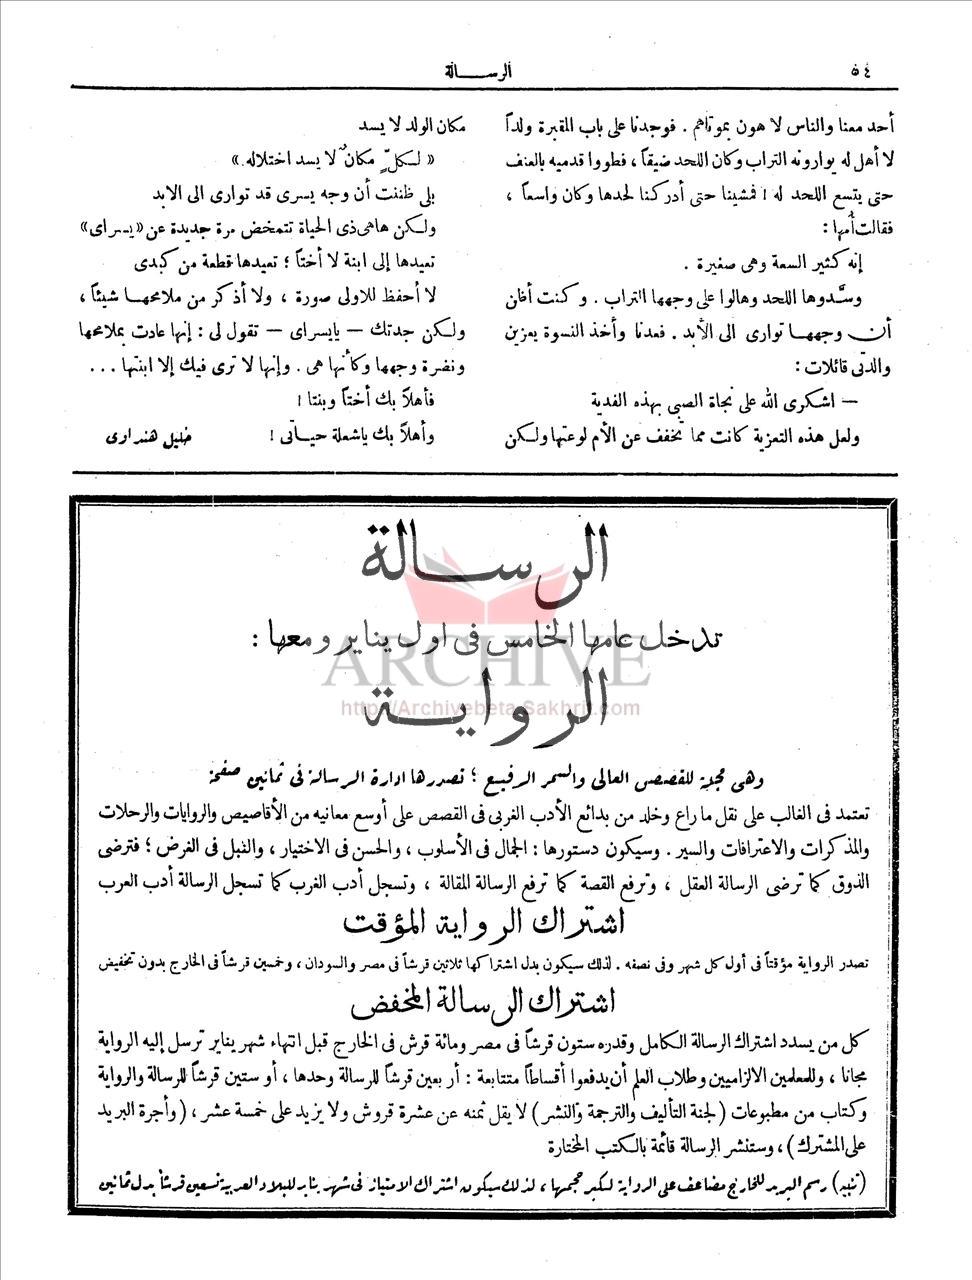 ٥٤
الرسـالة
أحد معنا والناس لا هون بموتاهم . فوجدنا على باب المقبرة ولداً
لا أهل له يوارونه التراب وكان اللحد ضيقاً ، فطووا قدميه بالعنف
حتى يتسع اللحد له ! فمشينا حتى أدركنا لحدها وكان واسعاً ،
فقالت أمها :
إنه كثير السعة وهى صغيرة .
وسدَّوها اللحد وهالوا على وجهها التراب . وكنت أظن
أن وجهها توارى الى الأبد . فعدنا وأخذ النسوة يعزين
والدتى قائلات :
— اشكرى الله على نجاة الصبى بهذه الفدية
ولعل هذه التعزية كانت مما تخفف عن الأم لوعتها ولكن
مكان الولد لا يسد
« لـكلٍّ مكانٌ لا يسد اختلاله »
بلى ظننت أن وجه يسرى قد توارى الى الابد
ولكن هاهى ذى الحياة تتمخض مرة جديدة عن «يسراى»
تعيدها إلى ابنة لا أختاً ؛ تعيدها قطعة من كبدى
لا أحفظ للاولى صورة ، ولا أذكر من ملامحها شيئاً ،
ولكن جدتك — يايسراى — تقول لى : إنها عادت بملامحها
ونضرة وجهها وكأنها هى . وإنها لا ترى فيك إلا ابنتها ...
فأهلاً بك أختاً وبنتا !
وأهلاً بك ياشعلة حياتى !
خليل هنداوى
الرسـالة
تدخل عامها الخامس فى اول يناير ومعها :
الروايـة
وهى مجلة للقصص العالى والسمر الرفيع ؛ تصدرها ادارة الرسالة فى ثمانين صفحة
تعتمد فى الغالب على نقل ما راع وخلد من بدائع الأدب الغربى فى القصص على أوسع معانيه من الأقاصيص والروايات والرحلات
والمذكرات والاعترافات والسير . وسيكون دستورها : الجمال فى الأسلوب ، والحسن فى الاختيار ، والنبل فى الغرض ؛ فترضى
الذوق كما ترضى الرسالة العقل ، وترفع القصة كما ترفع الرسالة المقالة ، وتسجل أدب الغرب كما تسجل الرسالة أدب العرب
اشتراك الرواية المؤقت
تصدر الرواية مؤقتاً فى أول كل شهر وفى نصفه . لذلك سيكون بدل اشتراكها ثلاثين قرشاً فى مصر والسودان ، وخمسين قرشاً فى الخارج بدون تخفيض
اشتراك الرسالة المخفض
كل من يسدد اشتراك الرسالة الكامل وقدره ستون قرشاً فى مصر ومائة قرش فى الخارج قبل انتهاء شهر يناير ترسل إليه الرواية
مجانا ، وللمعلمين الالزاميين وطلاب العلم أن يدفعوا أقساطاً متتابعة : أربعين قرشاً للرسالة وحدها ، أو ستين قرشاً للرسالة والرواية
وكتاب من مطبوعات (لجنة التأليف والترجمة والنشر) لا يقل ثمنه عن عشرة قروش ولا يزيد على خمسة عشر ، (وأجرة البريد
على المشترك) ، وستنشر الرسالة قائمة بالكتب المختارة
(تنبيه) رسم البريد للخارج مضاعف على الرواية لكبر حجمها ، لذلك سيكون اشتراك الامتياز فى شهر يناير للبلاد العربية تسعين قرشاً بدل ثمانين
ARCHIVE
http://Archivebeta.Sakhrit.com